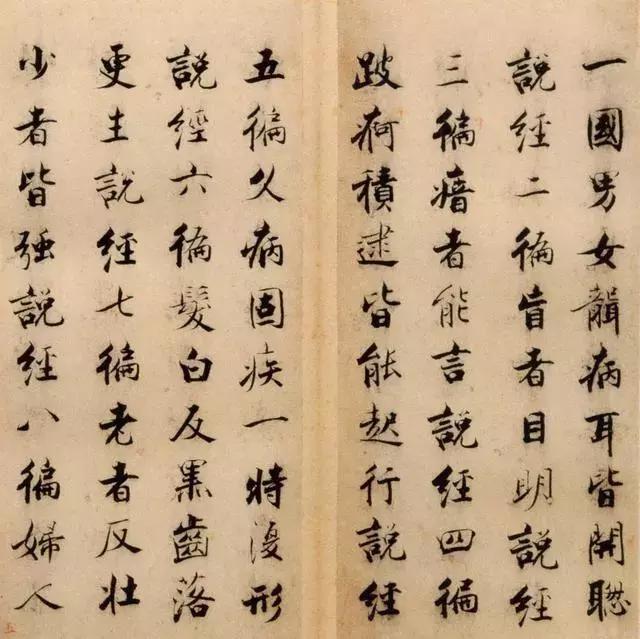 一國男女聾病耳皆開聦
說經二徧盲者目明說經
三徧瘖者能言說經四徧
跛痾積逮皆能起行說經
五徧久病固疾一時復形
說經六徧髮白反黑齒落
更生說經七徧老者反壯
少者皆强說經八徧婦人